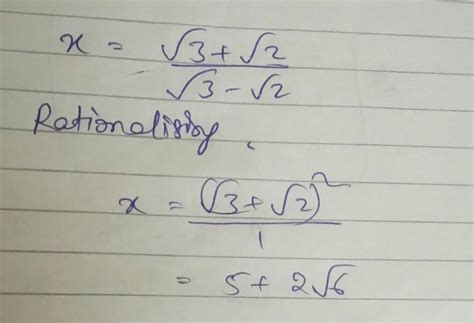 x = √3+√2 / √3-√2
Rationalising,
x = (√3+√2)² / 1
= 5+2√6